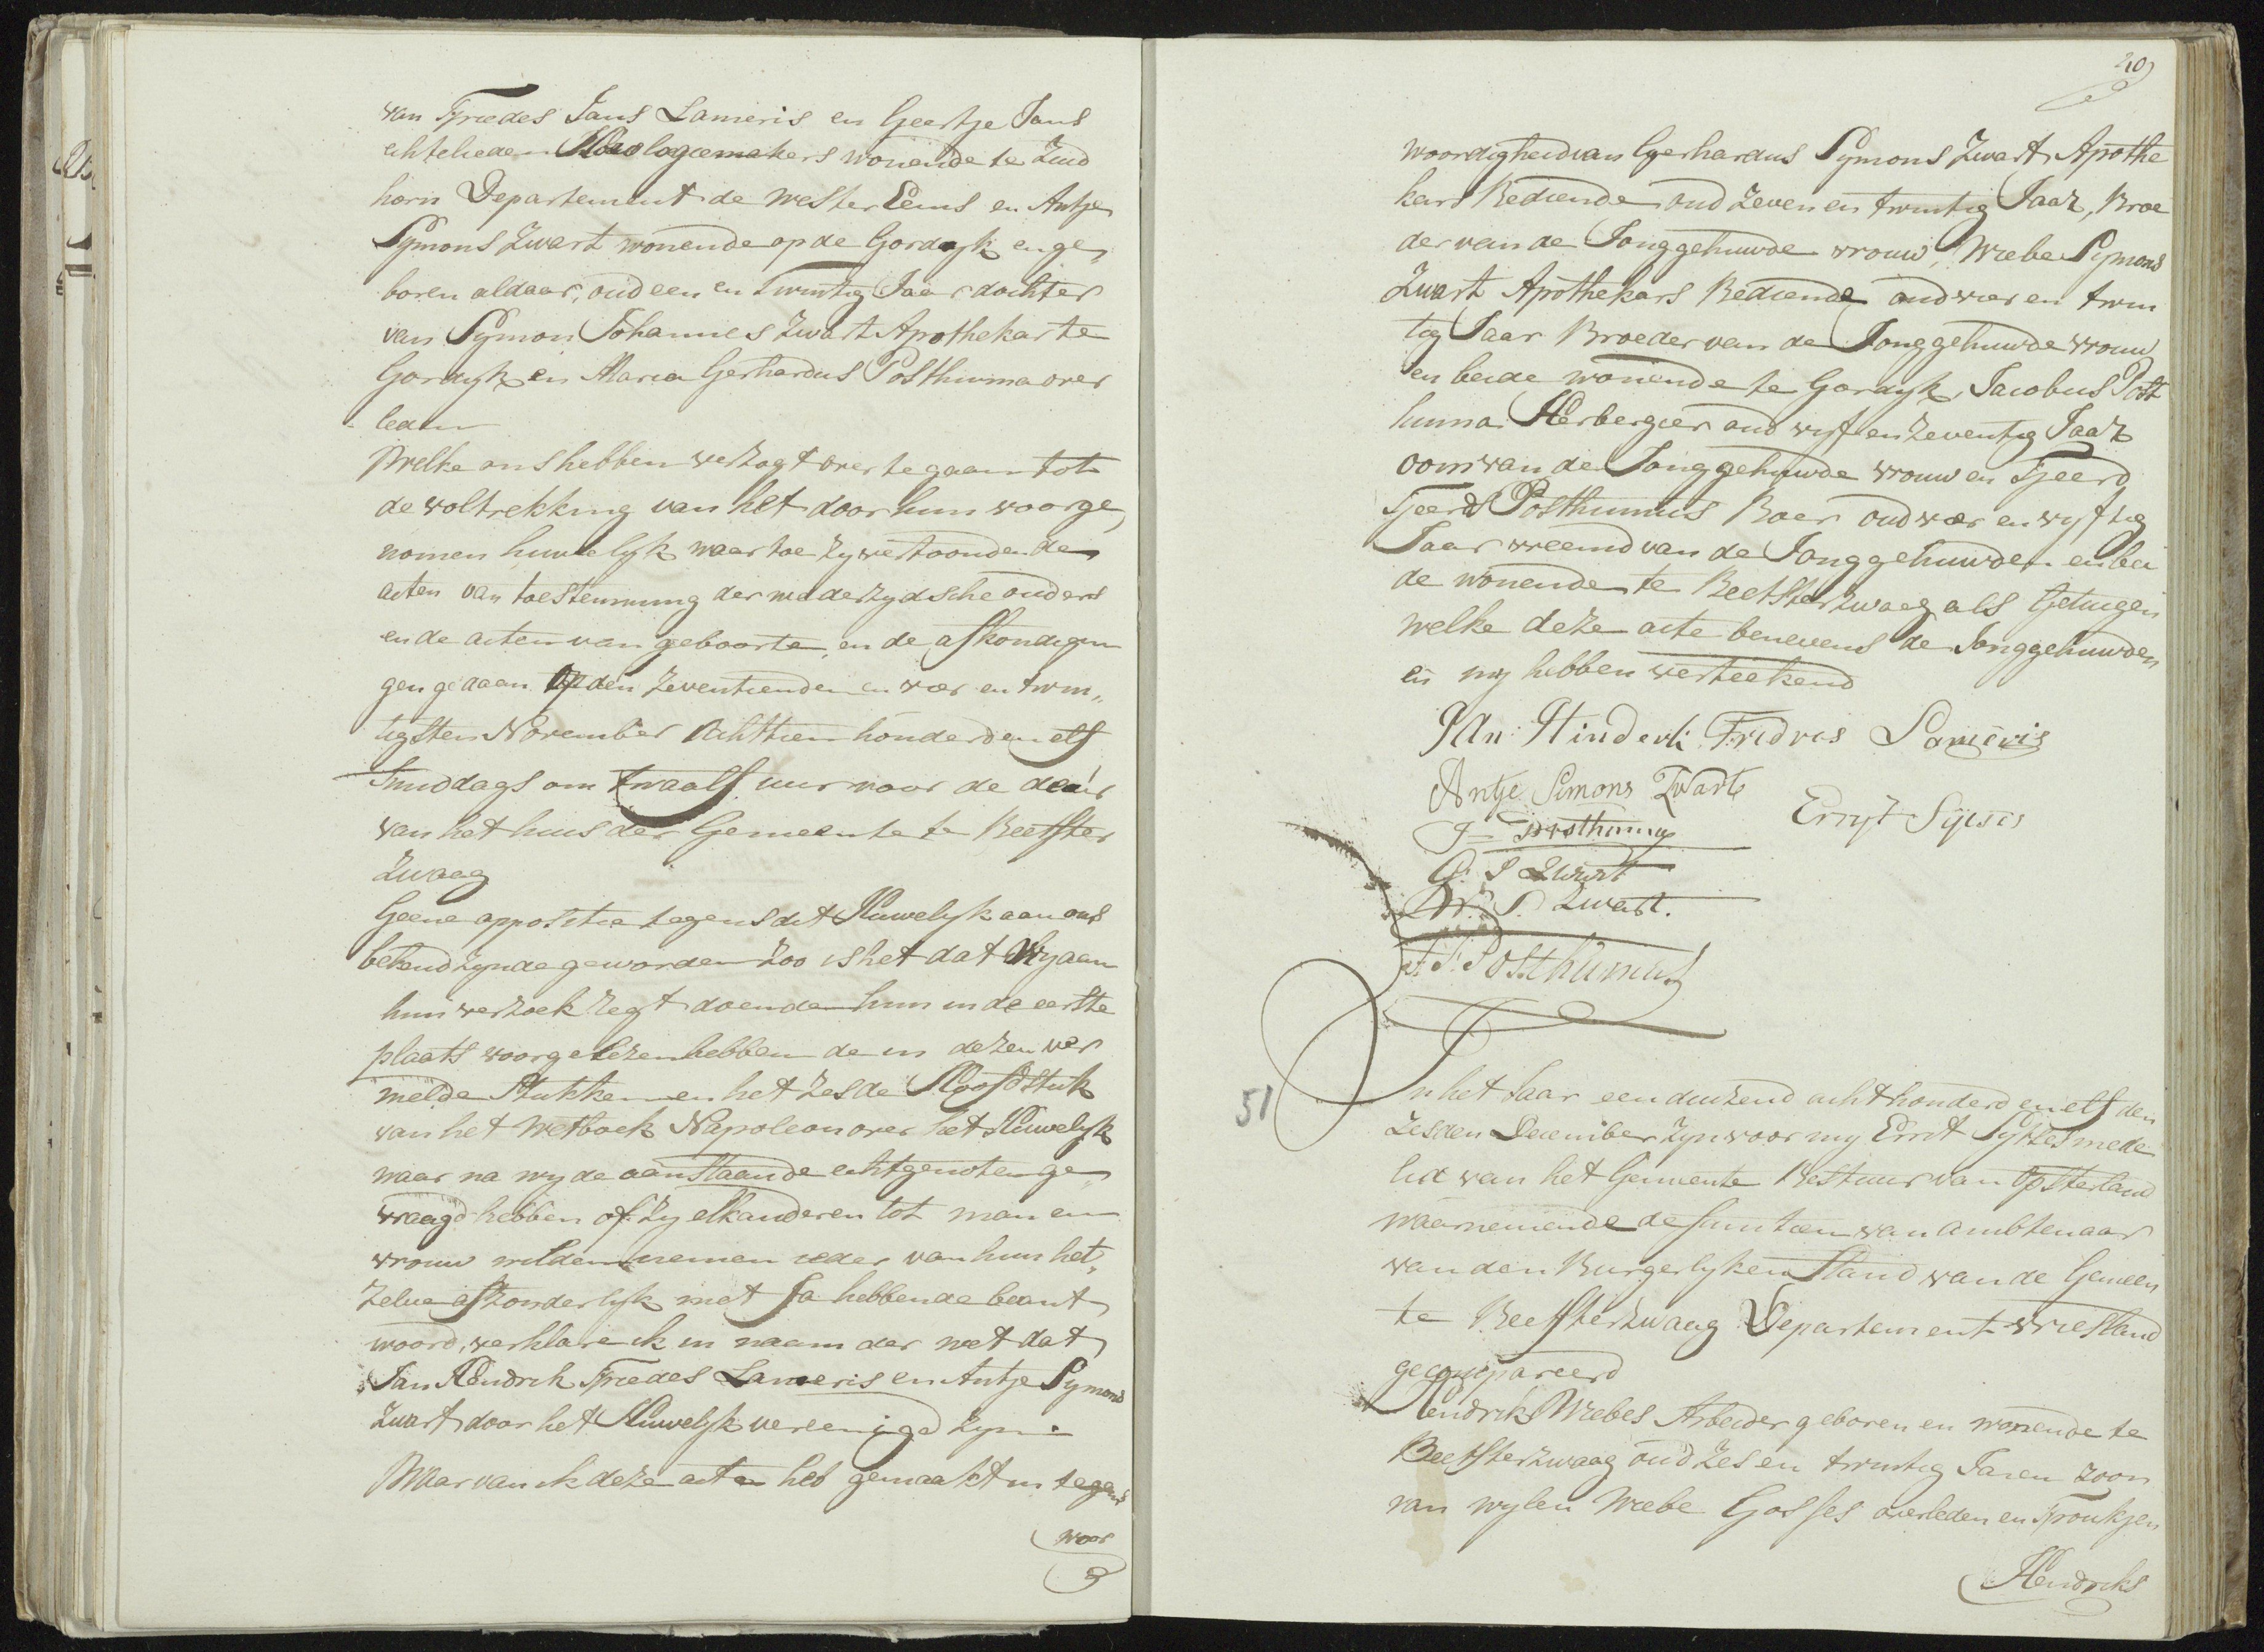 van Fredes Jans Lameris en Geertje Jans
echtelieden Horologiemakers wonende te Zuid
horn Departement de Wester Eems en Antje
Symons Zwart wonende op de Gordyk en ge„
boren aldaar, oud een en twintig Jaar dochter
van Symon Johannes Zwart Apothekar te
Gordyk en Maria Gerhardus Posthuma over
leden
Welke ons hebben verzogt over te gaan tot
de voltrekking van het door hun voorge„
nomen huwelyk waar toe zy vertoonden de
acten van toestemming der wederzydsche ouders
en de acten van geboorte, en de afkondigin
gen gedaan op den zeventienden en vier en twin„
tigsten November Achttien honderd en elf
smiddags om twaalf uur voor de deur
van het huis der Gemeente te Beetster
Zwaag
Geene oppositie tegens dit Huwelyk aan ons
bekend zynde geworden zoo is het dat Wy aan
hun verzoek regt doende hun in de eerste
plaats voorgelezen hebben de in dezen ver
melde Stukken en het zesde Hoofdstuk
van het Wetboek Napoleon over het Huwelyk
waar na wy de aanstaande echtgenoten ge„
vraagd hebben of zy elkanderen tot man en
vrouw wilden nemen ieder van hun het„
zelve afzonderlyk met Ja hebbende beant„
woord, verklare ik in naam der wet dat
Jan Hendrik Fredes Lameris en Antje Symons
Zwart door het Huwelyk vereenigd zyn.
Waar van ik deze acte heb gemaakt in tegens
woor
40
woordigheid van Gerhardus Symons Zwart Apothe
kars Bediende oud zeven en twintig Jaar, Broe
der van de Jonggehuwde vrouw, Wiebe Symons
Zwart Apothekars Bediende oud vier en twin
tig Jaar Broeder van de Jonggehuwde vrouw
en beide wonende te Gordyk, Jacobus Post
huma Herbergier oud vyf en zeventig Jaar
oom van de Jonggehuwde vrouw en Tjeerd
Tjeerds Posthumus Boer oud vier en vyftig
Jaar vreemd van de Jonggehuwden en bei
de wonende te Beetsterzwaag als Getuigen
welke deze acte benevens de Jonggehuwden
en my hebben verteekend
Jan Hinderk Fredres Lameris
Antje Simons Zwart
Ernst Sijtses
J Posthuma
G. S Zwart
W. S. Zwart.
T. T. Posthumus
51
In het Jaar een duizend acht honderd en elf den
zesden December zyn voor my Ernst Sytzes mede
lid van het Gemeente Bestuur van Opsterland
waarnemende de functien van ambtenaar
van den Burgerlyken Stand van de Gemeen
te Beetsterzwaag Departement Vriesland
gecompareerd
Hendrik Wiebes Arbeider geboren en wonende te
Beetsterzwaag oud zes en twintig Jaren zoon
van wylen Wiebe Gosses overleden en Froukjen
Hendriks